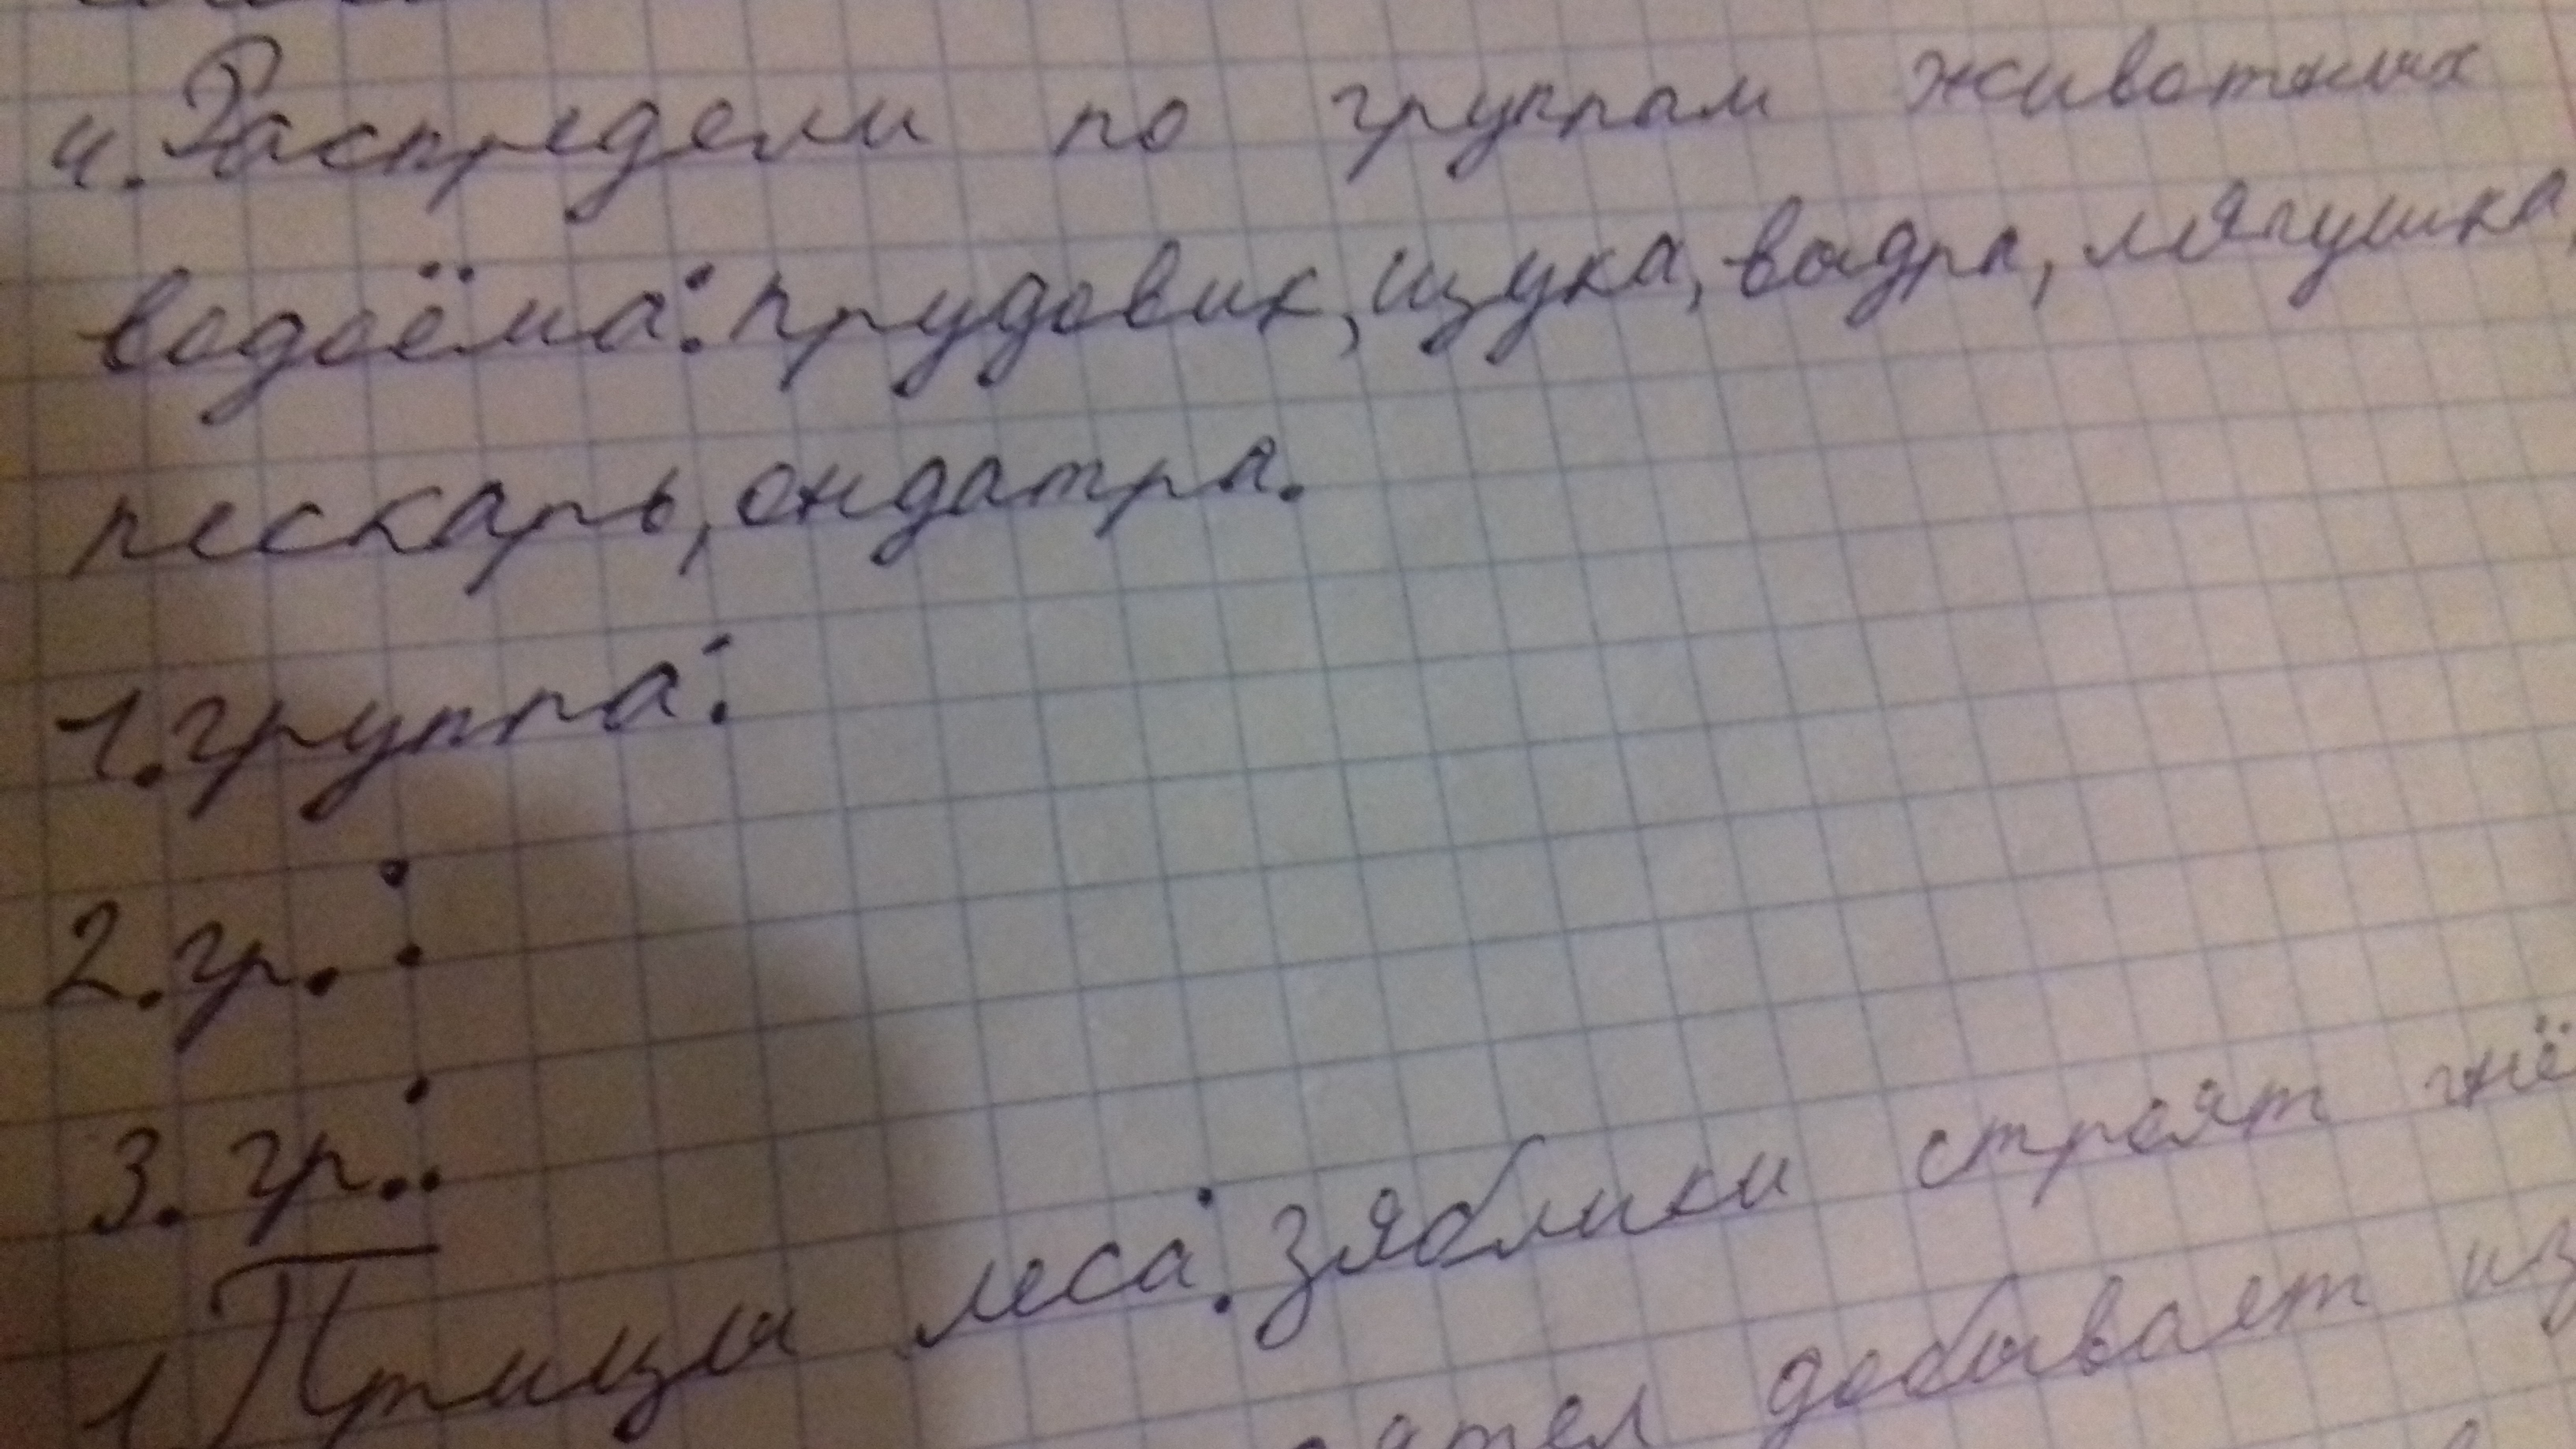 4. Распредели по группам животных
водоёма: прудовик, щука, выдра, лягушка,
пескарь, ондатра.
1. группа:
2. гр. :
3. гр. :
1 Птицы леса: зяблики строят гнё
добывает из